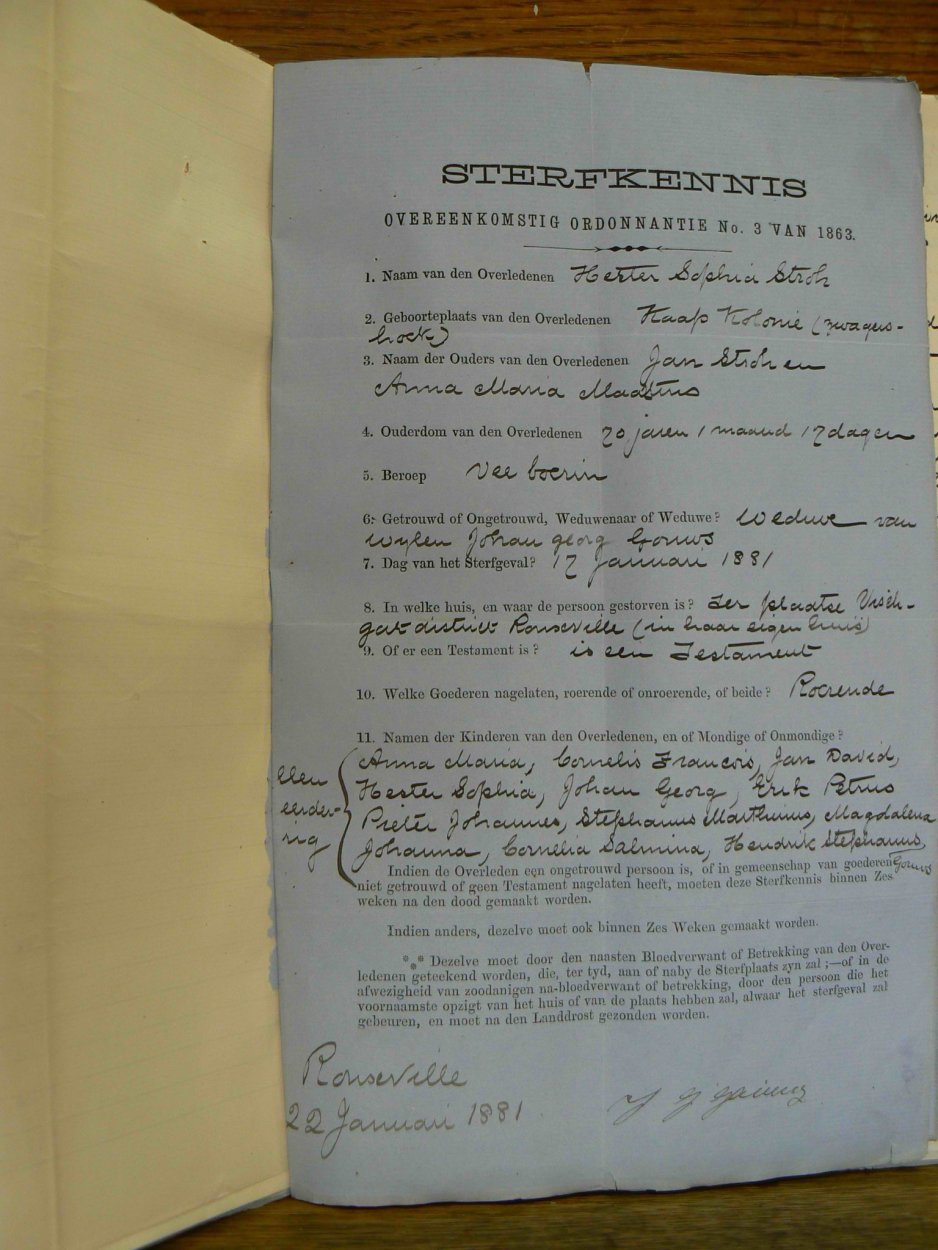 STERFKENNIS
OVEREENKOMSTIG ORDONNANTIE No. 3 VAN 1863.
1. Naam van den Overledenen Hester Sophia Stroh
2. Geboorteplaats van den Overledenen Kaap Kolonie (zwagers-
hoek)
3. Naam der Ouders van den Overledenen Jan Stroh en
Anna Maria
4. Ouderdom van den Overledenen 70 jaren 1 maand 17 dagen
5. Beroep Vee boerin
6. Getrouwd of Ongetrouwd, Weduwenaar of Weduwe? Weduwe van
wylen Johan georg Gouws
7. Dag van het Sterfgeval? 17 Januari 1881
8. In welke huis, en waar de persoon gestorven is? Ter plaatse Visch-
gat district Rouxville (in haar eigen huis)
9. Of er een Testament is? is een Testament
10. Welke Goederen nagelaten, roerende of onroerende, of beide? Roerende
11. Namen der Kinderen van den Overledenen, en of Mondige of Onmondige?
Anna Maria, Cornelis Francois, Jan David,
Hester Sophia, Johan Georg, Erik Petrus
Pieter Johannes, Stephanus Marthinus, Magdalena
Johanna, Cornelia Salmina, Hendrik Stephanus,
Gouws
Indien de Overleden een ongetrouwd persoon is, of in gemeenschap van goederen
niet getrouwd of geen Testament nagelaten heeft, moeten deze Sterfkennis binnen Zes
weken na den dood gemaakt worden.
Indien anders, dezelve moet ook binnen Zes Weken gemaakt worden.
*** Dezelve moet door den naasten Bloedverwant of Betrekking van den Over-
ledenen geteekend worden, die, ter tyd, aan of naby de Sterfplaats zyn zal ;—of in de
afwezigheid van zoodanigen na-bloedverwant of betrekking, door den persoon die het
voornaamste opzigt van het huis of van de plaats hebben zal, alwaar het sterfgeval zal
gebeuren, en moet na den Landdrost gezonden worden.
Rouxville
22 Januari 1881